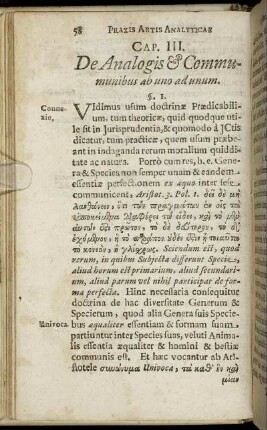 58 PRAXIS ARTIS ANALYTICAE
CAP. III.
De Analogis & Commu-
munibus ab uno ad unum.
§. 1.
Conne-
xio,
VIdimus usum doctrinæ Prædicabili-
um, tum theoricæ, quid quodque uti-
le sit in Jurisprudentia, & quomodo à JCtis
dicatur, tum practicæ, quem usum præbe-
ant in indaganda rerum moralium quiddi-
tate ac natura. Porrò cum res, h. e. Gene-
ra & Species non semper unam & eandem
essentiæ perfectionem ex æquo inter sese
communicent, Aristot. 3. Pol. 1.
Sciendum est, quod
rerum, in quibus Subjecta differunt Specie,
aliud horum est primarium, aliud secundari-
um, aliud parum vel nihil participat de for-
ma perfecta. Hinc necessaria consequitur
doctrina de hac diversitate Generum &
Specierum, quod alia Genera suis Specie-
Univoca bus æqualiter essentiam & formam suam
partiuntur inter Species suas, veluti Anima-
lis essentia æqualiter & homini & bestiæ
communis est. Et hæc vocantur ab Ari-
stotele συνώνυμα Univoca,